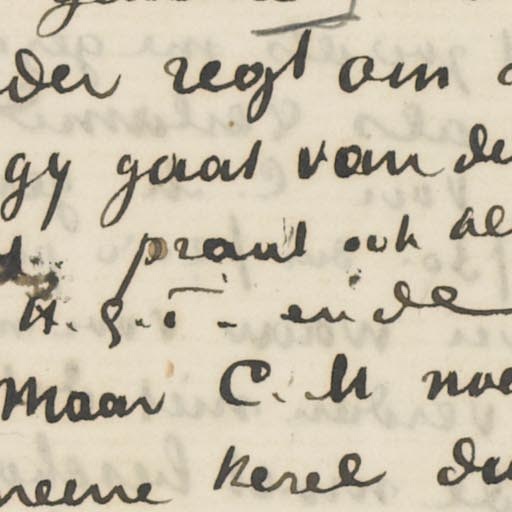 der regt om
gy gaat van de
praat ook al
en de
Maar C. M noe
meene kerel da